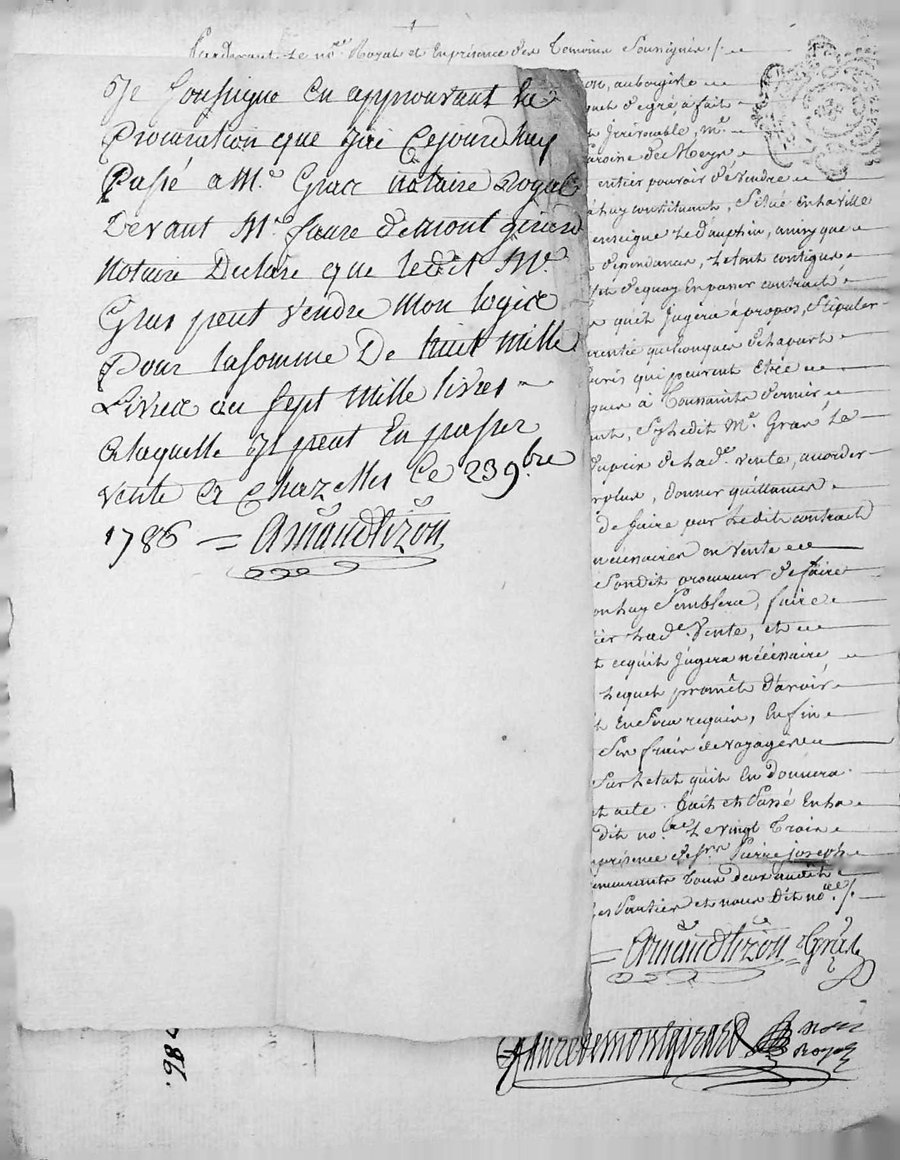 1
Pardevant le no.re Royal et En présence des Temoins Soussignés /.
Je soussigne en approuvant la
Procuration que j'ai Cejourd'huy
Passé a M.e Gras notaire Royal
Devant M.e faure de montgirard
Notaire Declare que ledit M.e
Gras peut vendre Mon logice
Pour la somme De huit Mille
Livres ou Sept Mille livres
a laquelle il peut En passer
vente a Chazelles ce 23 9.bre
1786 = Arnaud Lizon
aubergiste
a fait
irrévocable, M.e
de Meys
entier pouvoir de vendre
luy constituant, Situé en la ville
enseigne le Dauphin, ainsy que
dependances, le tout contigus
de quoy En passer contract
qu'il Jugera à propos, Stipuler
quelconques de la part
qui peuvent Etre
à Toussaints dernier
Sy ledit M.e Gras la
du prix de lad.e vente, accorder
plus, donner quittances
de faire par ledit contract
nécéssaires en vente
Sondit procureur de faire
luy Semblera, faire
lad.e Vente, et
ce qu'il Jugera nécéssaire
Lequel promet d'avoir
En Sera requis, Enfin
Ses frais de voyages
Sur l'etat qu'il En donnera
acte. fait et Passé En la
dit no.re le vingt Trois
présence de s.rs Pierre joseph
Tous deux audit
et nous dit no.re /.
= Arnaud Lizon = Gras
Faure de montgirard no.re Royal
786.